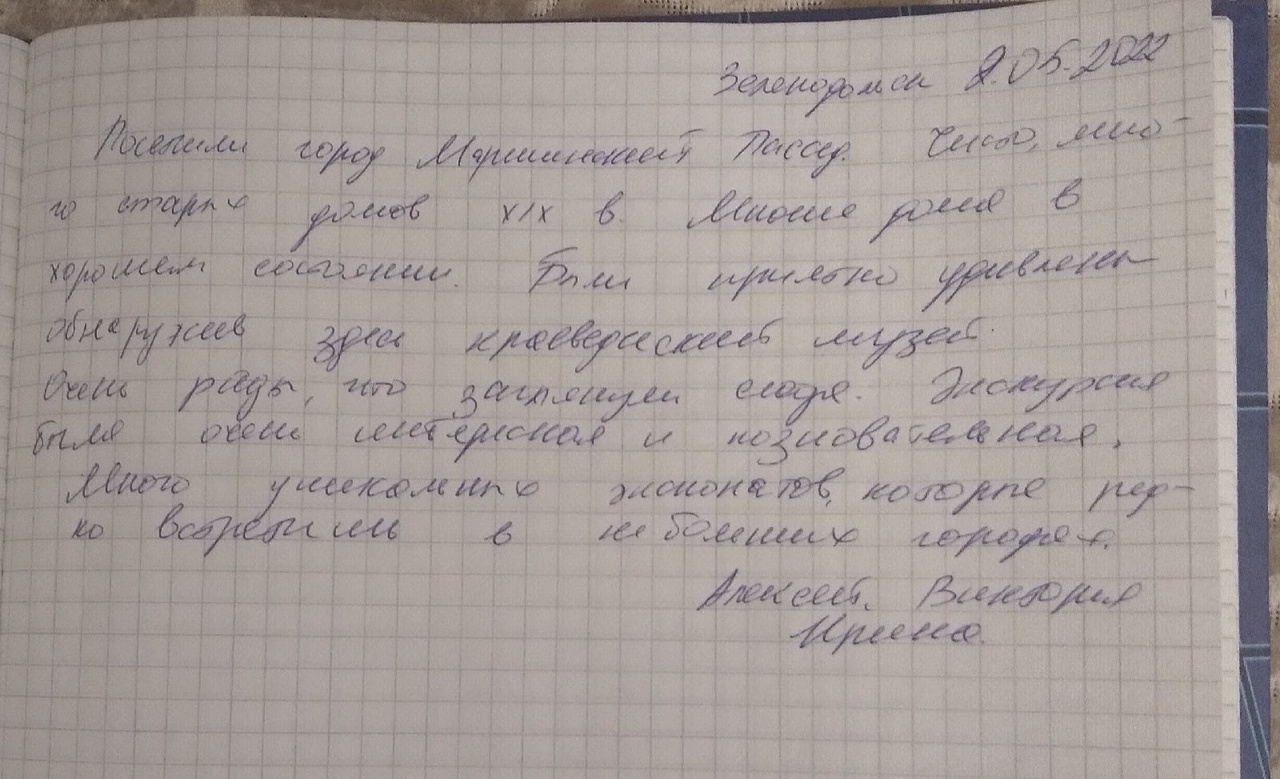 Зеленодольск 2.05.2022
Посетили город Мариинский Посад. Чисто, мно-
го старых домов XIX в. Многие дома в
хорошем состоянии. Были приятно удивлены
обнаружив здесь краеведческий музей.
Очень рады, что заглянули сюда. Экскурсия
была очень интересная и познавательная.
Много уникальных экспонатов, которые ред-
ко встретишь в небольших городах.
Алексей, Виктория
Ирина.